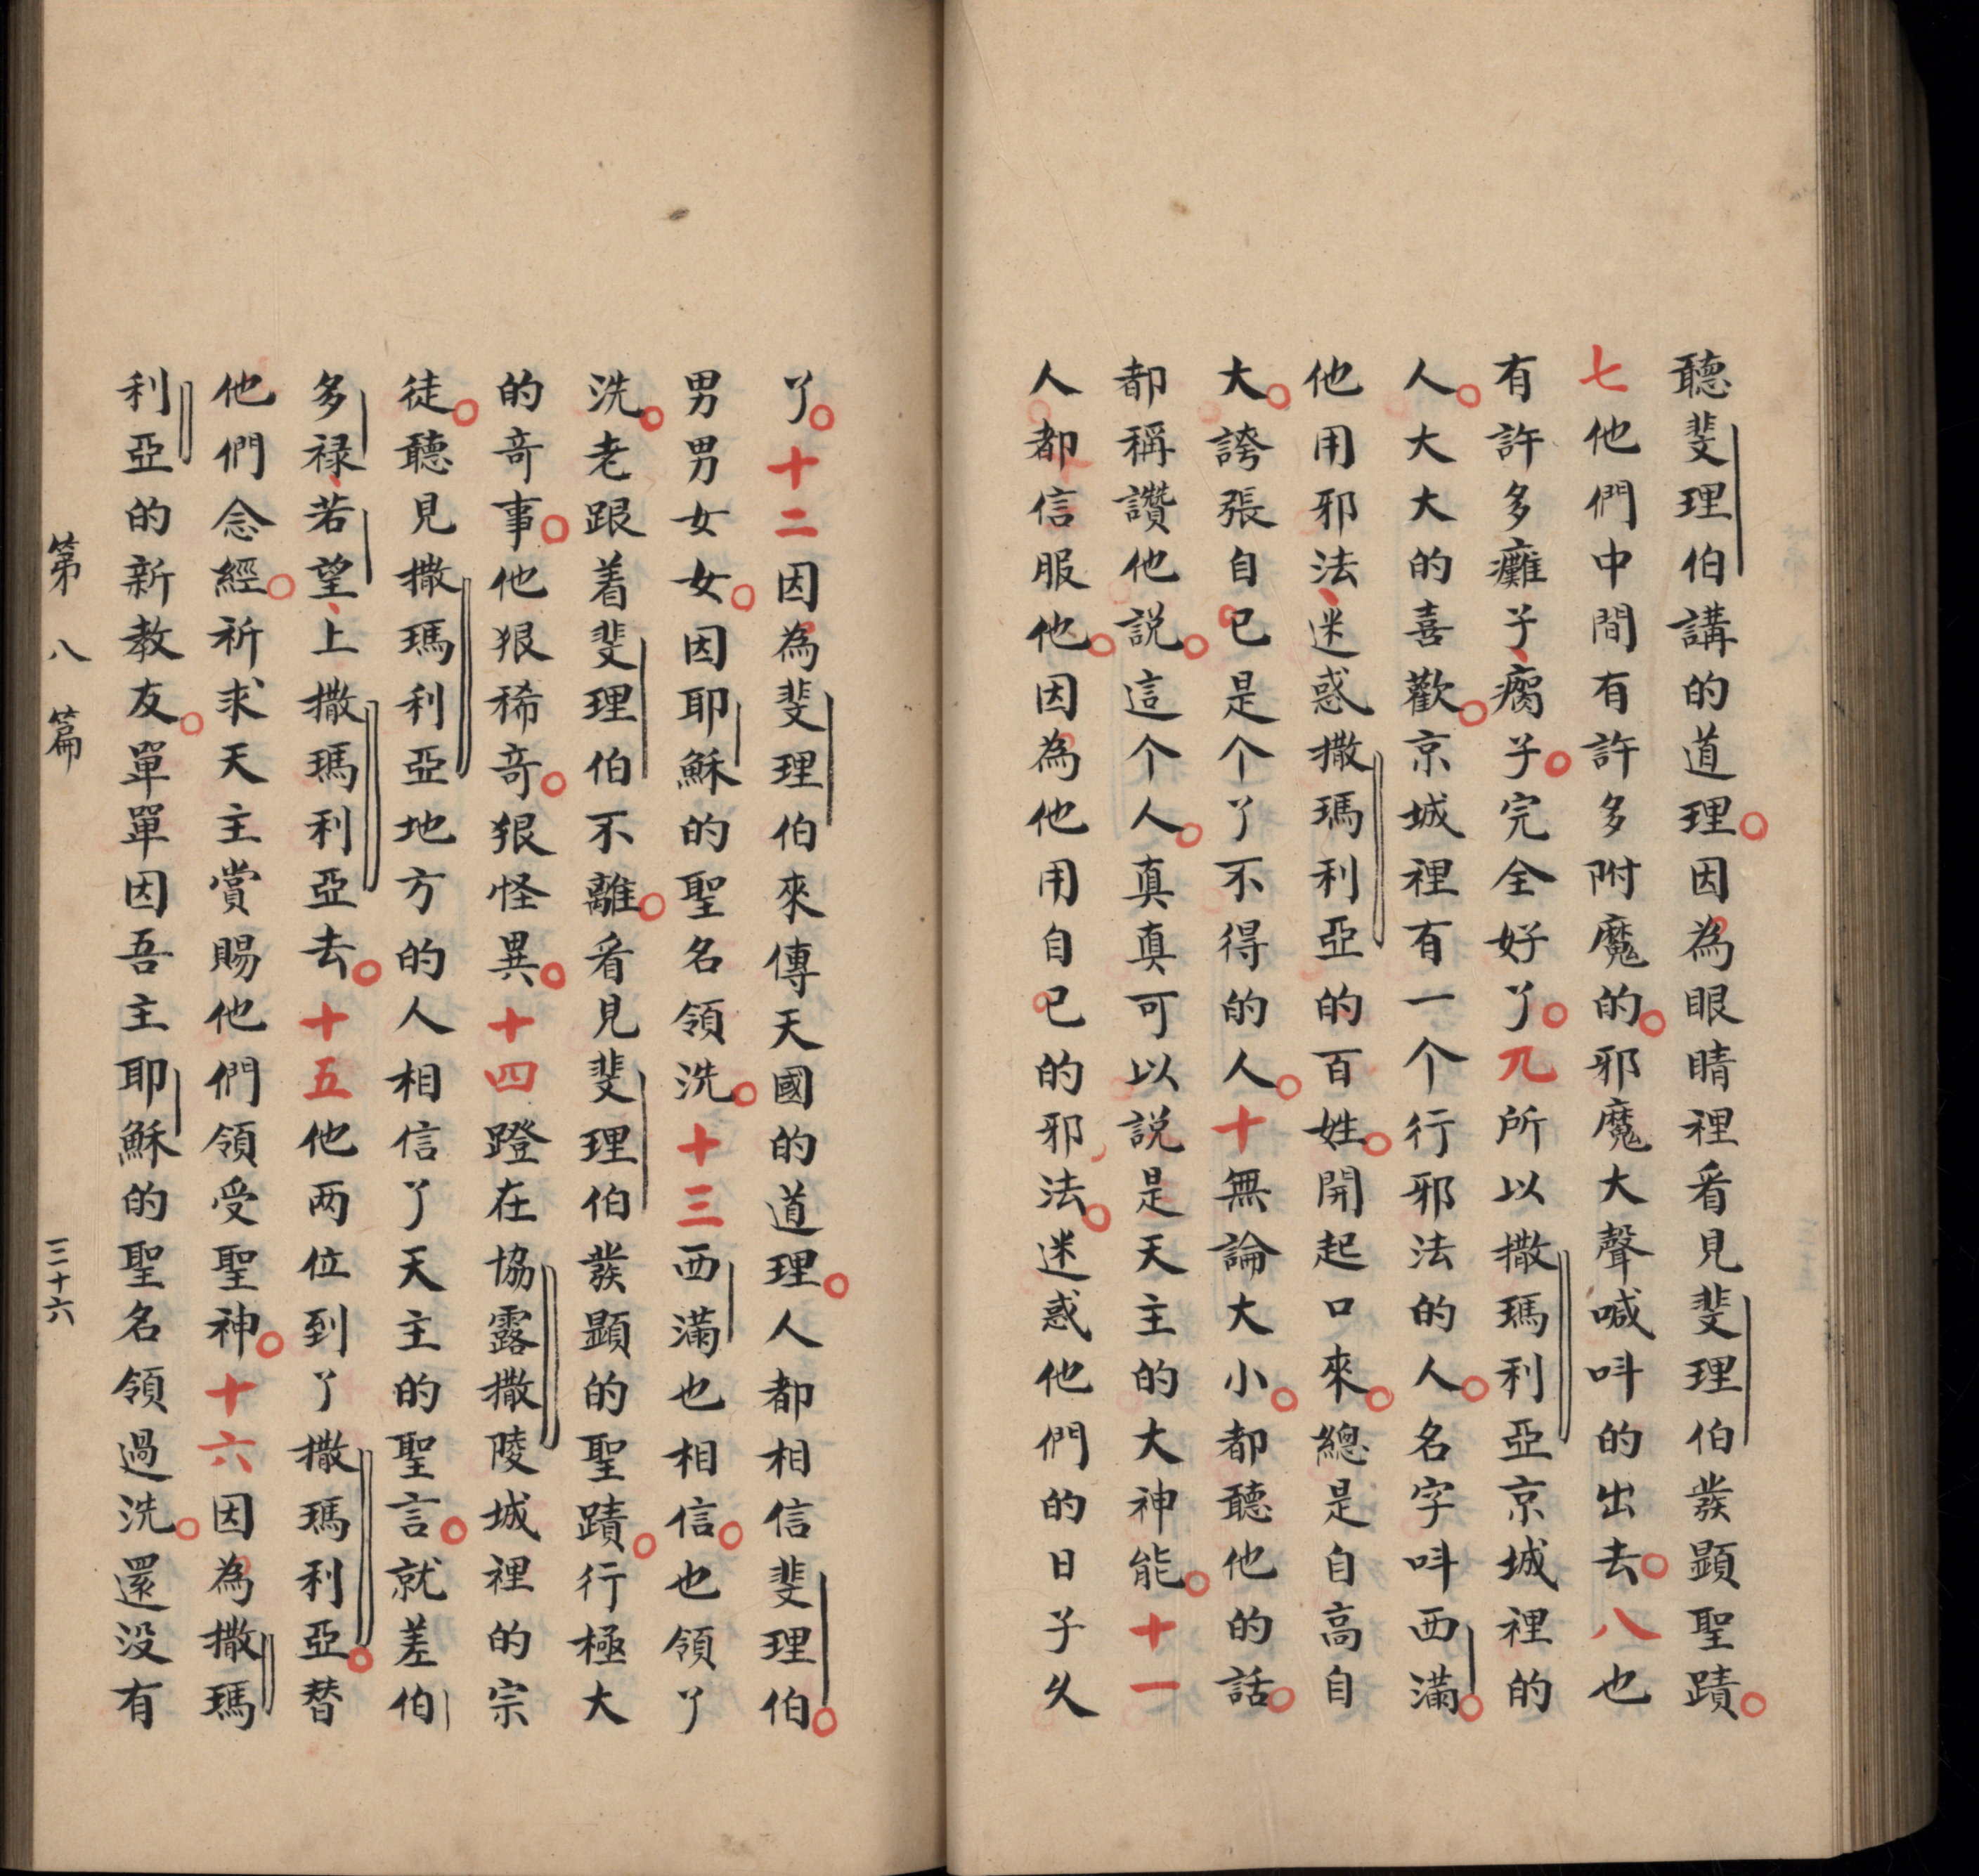 聽斐理伯講的道理。因為眼睛裡看見斐理伯發顯聖蹟。
七他們中間有許多附魔的。邪魔大聲喊呌的出去。八也
有許多癱子、瘸子。完全好了。九所以撒瑪利亞京城裡的
人。大大的喜歡。京城裡有一个行邪法的人。名字呌西滿。
他用邪法、迷惑撒瑪利亞的百姓。開起口來。總是自高自
大。誇張自己是个了不得的人。十無論大小。都聽他的話。
都稱讚他說。這个人。真真可以說是天主的大神能。十一
人都信服他。因為他用自己的邪法。迷惑他們的日子久
了。十二因為斐理伯來傳天國的道理。人都相信斐理伯。
男男女女。因耶穌的聖名領洗。十三西滿也相信。也領了
洗。老跟着斐理伯不離。看見斐理伯發顯的聖蹟。行極大
的竒事。他狠稀竒。狠怪異。十四蹬在協露撒陵城裡的宗
徒。聽見撒瑪利亞地方的人相信了天主的聖言。就差伯
多禄、若望、上撒瑪利亞去。十五他两位到了撒瑪利亞。替
他們念經。祈求天主賞賜他們領受聖神。十六因為撒瑪
利亞的新教友。單單因吾主耶穌的聖名領過洗。還没有
第八篇 三十六